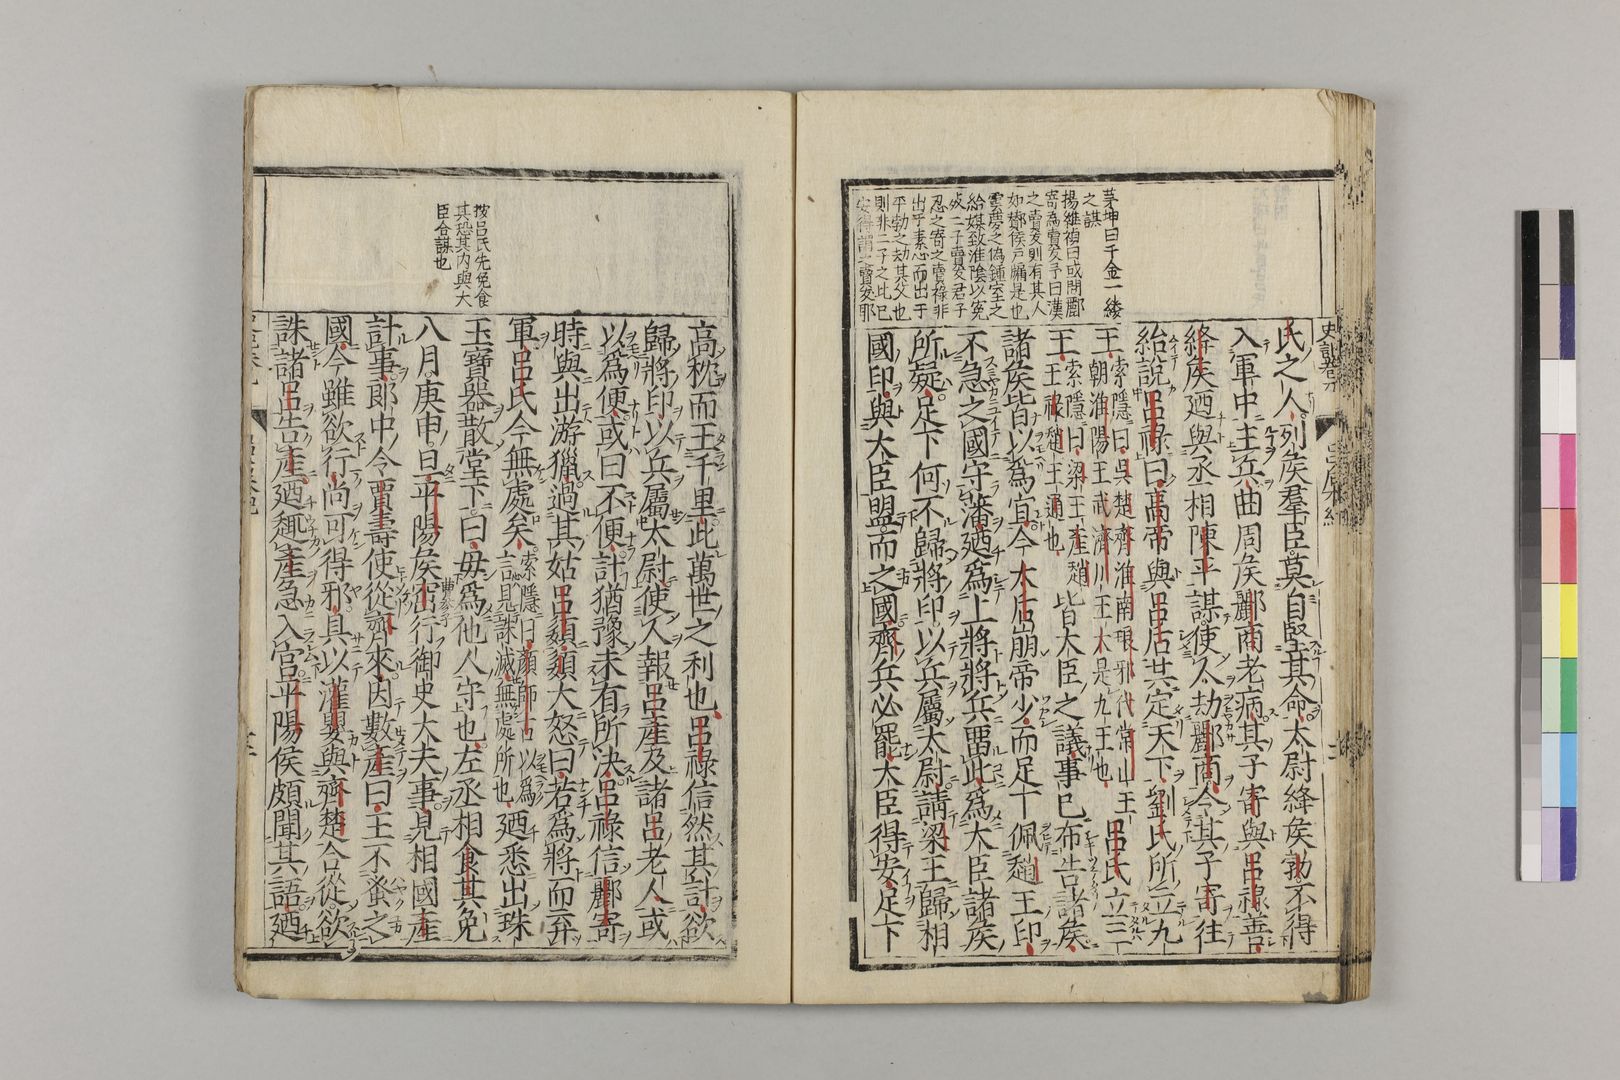 史記卷九
呂后紀
茅坤曰千金一緩
之謀
楊維禎曰或問酈
寄為賣友乎曰漢
之賣友則有其人
如酈侯戸牖是也
雲夢之偽鍾室之
紿媒致淮陰以寃
二子賣友君子
忍之寄之賣祿非
出乎素心而出于
平勃之劫其父也
則非二子之比已
安得謂之賣友耶
氏之人列矦羣臣莫自堅其命太尉絳矦勃不得
入軍中主兵曲周矦酈商老病其子寄與呂祿善
絳矦廼與丞相陳平謀使人劫酈商令其子寄往
紿說呂祿曰高帝與呂后共定天下劉氏所立九
王索隱曰吳楚齊淮南琅邪代常山王
朝淮陽王武濟川王太是九王也
呂氏立三
王索隱曰梁王產趙
王祿趙王通也
皆大臣之議事已布告諸矦
諸矦皆以爲宜今太后崩帝少而足下佩趙王印
不急之國守藩廼爲上將將兵畱此爲大臣諸矦
所疑足下何不歸將印以兵屬太尉請梁王歸相
國印與大臣盟而之國齊兵必罷大臣得安足下
高枕而王千里此萬世之利也呂祿信然其計欲
歸將印以兵屬太尉使人報呂產及諸呂老人或
以爲便或曰不便計猶豫未有所決呂祿信酈寄
時與出游獵過其姑呂嬃嬃大怒曰若爲將而弃
軍呂氏今無處矣索隱曰顏師古以爲
言見誅滅無處所也
廼悉出珠
玉寶器散堂下曰毋爲他人守也左丞相食其免
八月庚申旦平陽矦窋行御史大夫事見相國產
計事郎中令賈壽使從齊來因數產曰王不蚤之
國今雖欲行尚可得邪具以灌嬰與齊楚合從欲
誅諸呂告產廼趣產急入宮平陽侯頗聞其語廼
按呂氏先免食
其恐其內與大
臣合謀也